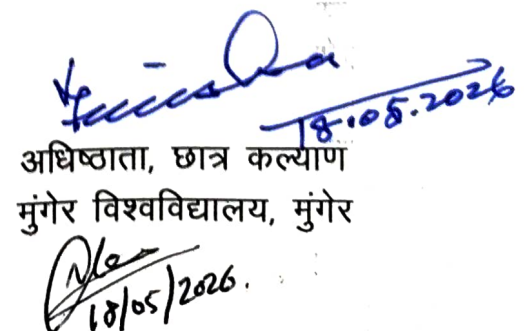 18.05.2026
अधिष्ठाता, छात्र कल्याण
मुंगेर विश्वविद्यालय, मुंगेर
18/05/2026.